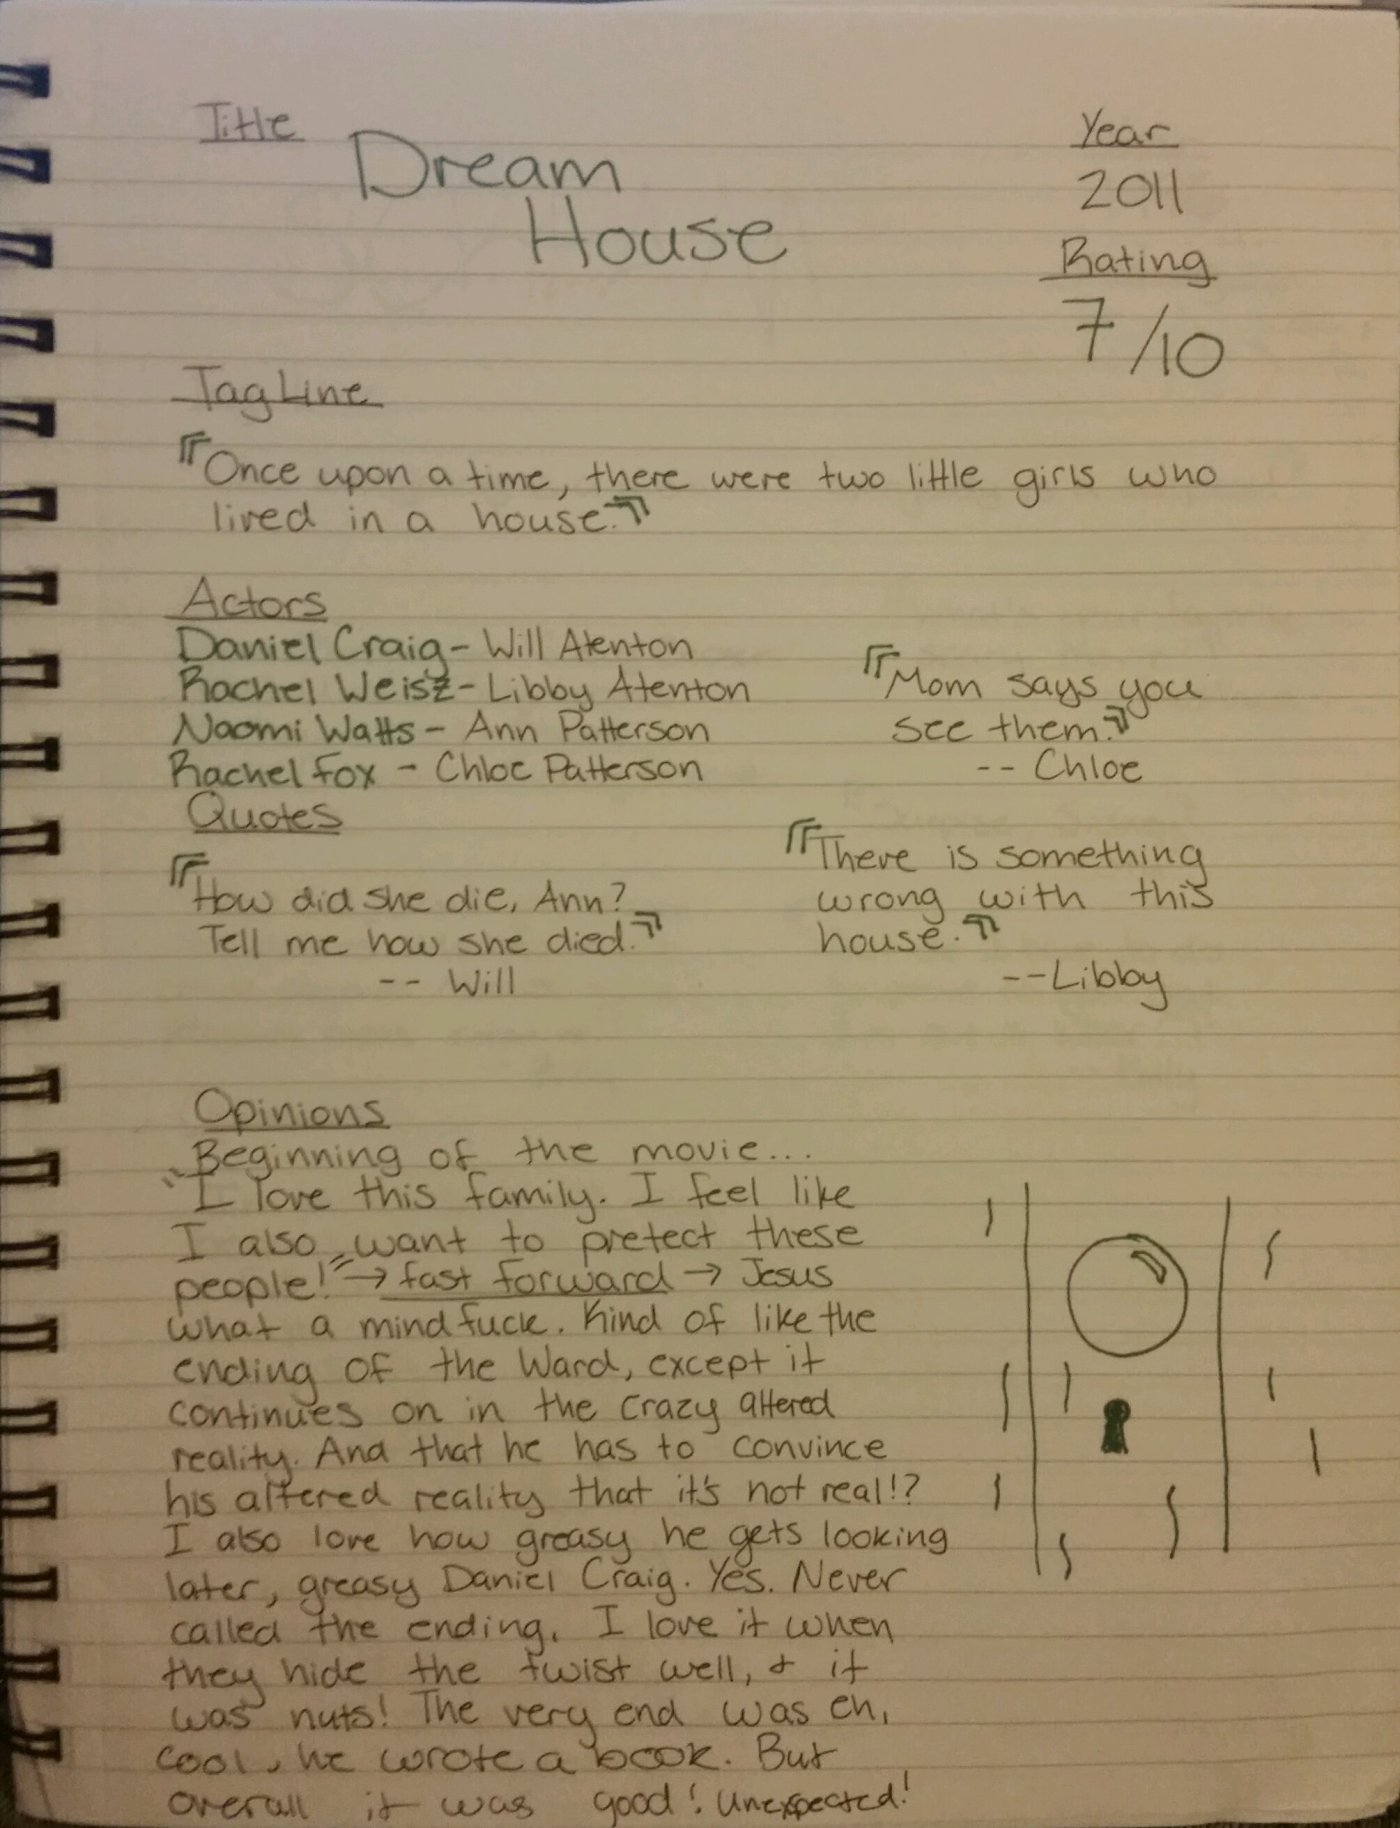 Title
Dream
House
Year
2011
Rating
7/10
Tag Line
"Once upon a time, there were two little girls who
lived in a house."
Actors
Daniel Craig - Will Atenton
Rachel Weisz - Libby Atenton
Naomi Watts - Ann Patterson
Rachel Fox - Chloe Patterson
"Mom says you
see them."
-- Chloe
Quotes
"How did she die, Ann?
Tell me how she died."
-- Will
"There is something
wrong with this
house."
--Libby
Opinions
Beginning of the movie...
"I love this family. I feel like
I also want to pretect these
people!" → fast forward → Jesus
what a mindfuck. Kind of like the
ending of the Ward, except it
continues on in the crazy altered
reality. And that he has to convince
his altered reality that it's not real!?
I also love how greasy he gets looking
later, greasy Daniel Craig. Yes. Never
called the ending. I love it when
they hide the twist well, & it
was nuts! The very end was eh,
cool, he wrote a book. But
overall it was good! Unexpected!